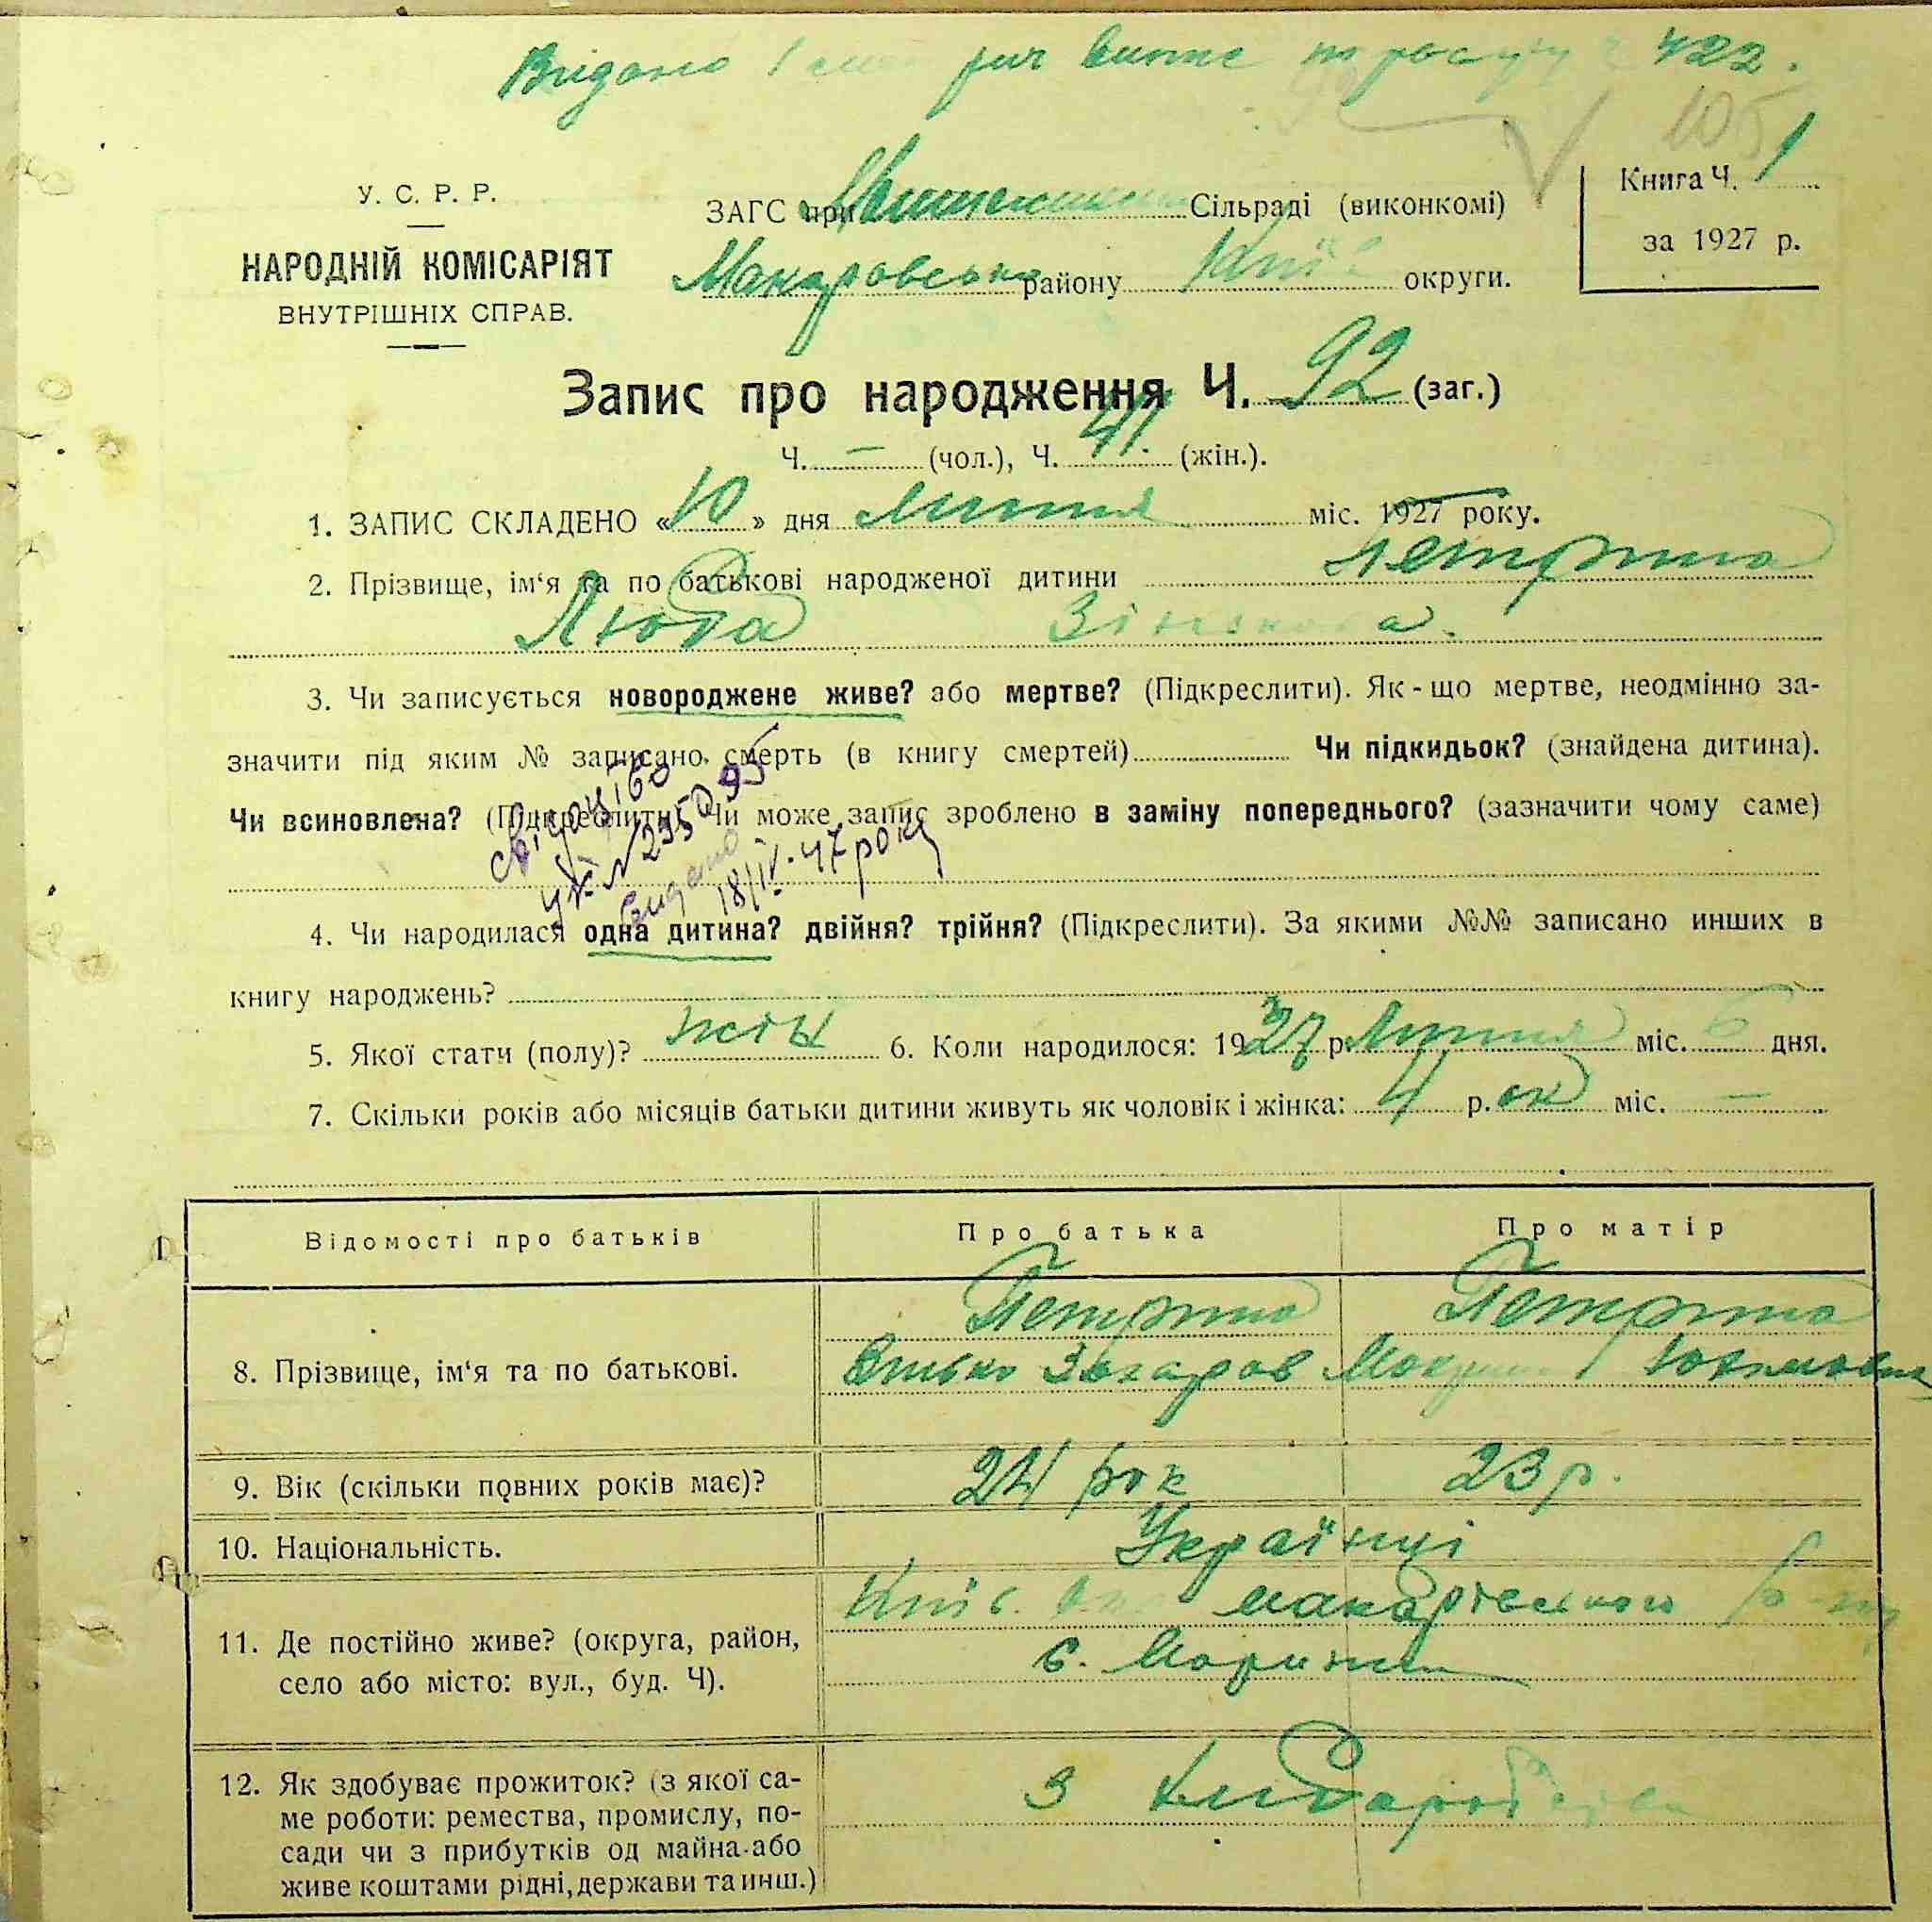 Видано
422.
У. С. Р. Р.
НАРОДНІЙ КОМІСАРІЯТ
ВНУТРІШНІХ СПРАВ.
ЗАГС при Сільраді (виконкомі)
Макаровсько району Київ округи.
Книга Ч. 1
за 1927 р.
Запис про народження Ч. 92 (заг.)
Ч. — (чол.), Ч. 41. (жін.).
1. ЗАПИС СКЛАДЕНО «10» дня липня міс. 1927 року.
2. Прізвище, ім‘я та по батькові народженої дитини Петрина
Люба
3. Чи записується новороджене живе? або мертве? (Підкреслити). Як-що мертве, неодмінно за-
значити під яким № записано смерть (в книгу смертей) Чи підкидьок? (знайдена дитина).
Чи всиновлена? (Підкреслити). Чи може запис зроблено в заміну попереднього? (зазначити чому саме)
свідоцтво
видано
18/IV-47 року
4. Чи народилася одна дитина? двійня? трійня? (Підкреслити). За якими №№ записано инших в
книгу народжень?
5. Якої стати (полу)? жін 6. Коли народилося: 1927 р. липня міс. 6 дня.
7. Скільки років або місяців батьки дитини живуть як чоловік і жінка: 4 р.ок міс. —
Відомості про батьків Про батька Про матір
8. Прізвище, ім‘я та по батькові. Петрина Петрина
Захаров Юхимовна
9. Вік (скільки повних років має)? 24 рок 23 р.
10. Національність. Українці
11. Де постійно живе? (округа, район,
село або місто: вул., буд. Ч).
Київ. Макарівського
с.
12. Як здобуває прожиток? (з якої са-
ме роботи: ремества, промислу, по-
сади чи з прибутків од майна-або
живе коштами рідні, держави та инш.)
З хліборобства